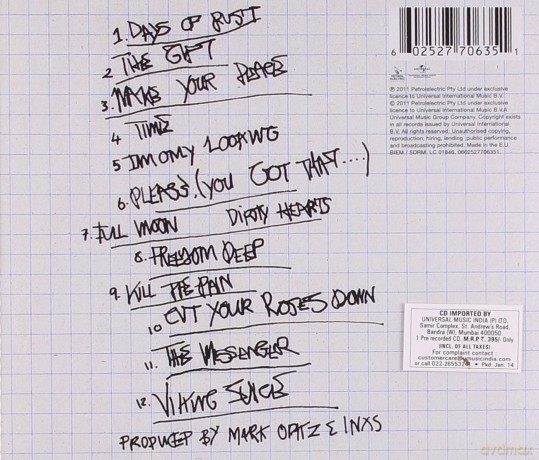 1. DAYS OF RUST
2 THE GIFT
3. MAKE YOUR PEACE
4 TIME
5 IM ONLY LOOKING
6. PLEASE. (YOU GOT THAT....)
7. FULL MOON DIRTY HEARTS
8. FREEDOM DEEP
9. KILL THE PAIN
10 CUT YOUR ROSES DOWN
11. THE MESSENGER
12. VIKING JUICE
PRODUCED BY MARK OPITZ & INXS
6 02527 70635 1
℗ 2011 Petrolelectric Pty Ltd under exclusive
licence to Universal International Music B.V.
© 2011 Petrolelectric Pty Ltd under exclusive
licence to Universal International Music B.V.
Universal Music Group Company. Copyright exists
in all records issued by Universal International
B.V. All rights reserved. Unauthorised copying,
reproduction, hiring, lending, public performance
and broadcasting prohibited. Made in the E.U.
BIEM / SDRM. LC 01846. 0602527706351.
CD IMPORTED BY
UNIVERSAL MUSIC INDIA (P) LTD.
Samir Complex, St. Andrew's Road,
Bandra (W), Mumbai 400050.
1 Pre recorded CD. M.R.P. ₹. 395/- Only
(INCL. OF ALL TAXES)
For complaint contact
customercare@umusicindia.com
or call 022-2655 • Pkd: Jan. 14
avdmax